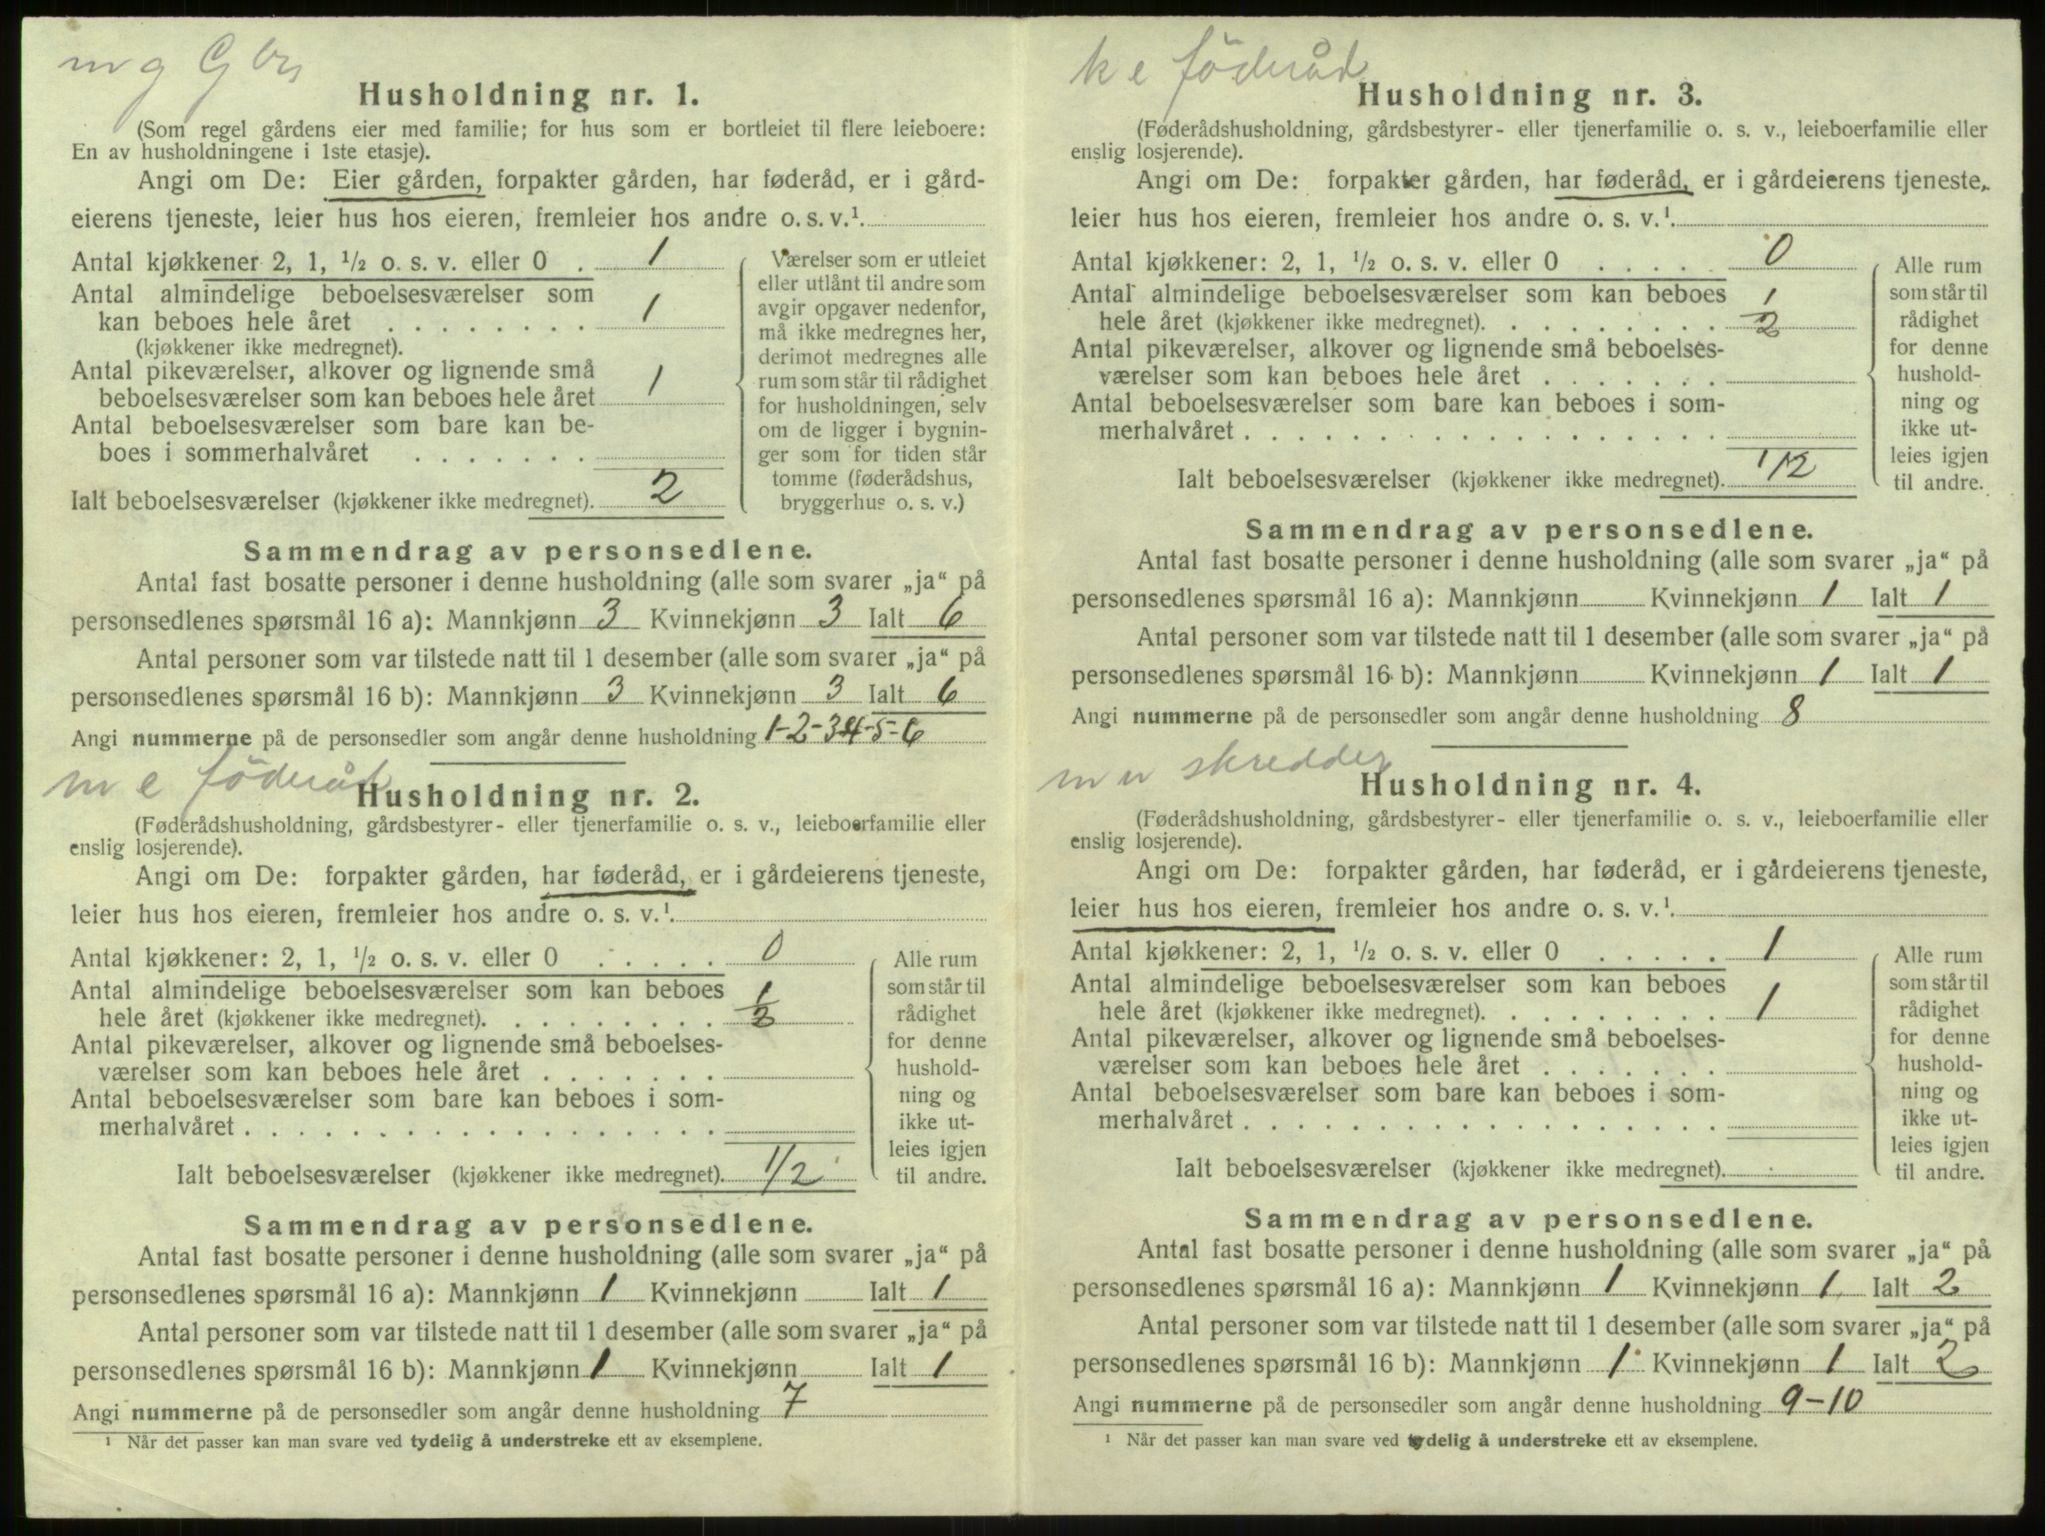 m g G br
Husholdning nr. 1.
(Som regel gårdens eier med familie; for hus som er bortleiet til flere leieboere:
En av husholdningene i 1ste etasje).
Angi om De: Eier gården, forpakter gården, har føderåd, er i gård-
eierens tjeneste, leier hus hos eieren, fremleier hos andre o. s. v.¹
Antal kjøkkener 2, 1, ½ o. s. v. eller 0 . 1
Antal almindelige beboelsesværelser som
kan beboes hele året . . . . . . . . 1
(kjøkkener ikke medregnet).
Antal pikeværelser, alkover og lignende små
beboelsesværelser som kan beboes hele året 1
Antal beboelsesværelser som bare kan be-
boes i sommerhalvåret . . . . . . .
Ialt beboelsesværelser (kjøkkener ikke medregnet). 2
Værelser som er utleiet
eller utlånt til andre som
avgir opgaver nedenfor,
må ikke medregnes her,
derimot medregnes alle
rum som står til rådighet
for husholdningen, selv
om de ligger i bygnin-
ger som for tiden står
tomme (føderådshus,
bryggerhus o. s. v.)
Sammendrag av personsedlene.
Antal fast bosatte personer i denne husholdning (alle som svarer „ja“ på
personsedlenes spørsmål 16 a): Mannkjønn 3 Kvinnekjønn 3 Ialt 6
Antal personer som var tilstede natt til 1 desember (alle som svarer „ja“ på
personsedlenes spørsmål 16 b): Mannkjønn 3 Kvinnekjønn 3 Ialt 6
Angi nummerne på de personsedler som angår denne husholdning 1-2-3-4-5-6
m e föderåd
Husholdning nr. 2.
(Føderådshusholdning, gårdsbestyrer- eller tjenerfamilie o. s. v., leieboerfamilie eller
enslig losjerende).
Angi om De: forpakter gården, har føderåd, er i gårdeierens tjeneste,
leier hus hos eieren, fremleier hos andre o. s. v.¹
Antal kjøkkener: 2, 1, ½ o. s. v. eller 0 . . . . . 0
Antal almindelige beboelsesværelser som kan beboes
hele året (kjøkkener ikke medregnet). . . . . . . . . 1/2
Antal pikeværelser, alkover og lignende små beboelses-
værelser som kan beboes hele året . . . . . . .
Antal beboelsesværelser som bare kan beboes i som-
merhalvåret . . . . . . . . . . . . . . . . . .
Ialt beboelsesværelser (kjøkkener ikke medregnet). 1/2
Alle rum
som står til
rådighet
for denne
hushold-
ning og
ikke ut-
leies igjen
til andre.
Sammendrag av personsedlene.
Antal fast bosatte personer i denne husholdning (alle som svarer „ja“ på
personsedlenes spørsmål 16 a): Mannkjønn 1 Kvinnekjønn Ialt 1
Antal personer som var tilstede natt til 1 desember (alle som svarer „ja“ på
personsedlenes spørsmål 16 b): Mannkjønn 1 Kvinnekjønn Ialt 1
Angi nummerne på de personsedler som angår denne husholdning 7
¹ Når det passer kan man svare ved tydelig å understreke ett av eksemplene.
k e föderåd
Husholdning nr. 3.
(Føderådshusholdning, gårdsbestyrer- eller tjenerfamilie o. s. v., leieboerfamilie eller
enslig losjerende).
Angi om De: forpakter gården, har føderåd, er i gårdeierens tjeneste,
leier hus hos eieren, fremleier hos andre o. s. v.¹
Antal kjøkkener: 2, 1, ½ o. s. v. eller 0 . . . . . 0
Antal almindelige beboelsesværelser som kan beboes
hele året (kjøkkener ikke medregnet). . . . . . . . . 1/2
Antal pikeværelser, alkover og lignende små beboelses-
værelser som kan beboes hele året . . . . . . .
Antal beboelsesværelser som bare kan beboes i som-
merhalvåret . . . . . . . . . . . . . . . . . .
Ialt beboelsesværelser (kjøkkener ikke medregnet). 1/2
Alle rum
som står til
rådighet
for denne
hushold-
ning og
ikke ut-
leies igjen
til andre.
Sammendrag av personsedlene.
Antal fast bosatte personer i denne husholdning (alle som svarer „ja“ på
personsedlenes spørsmål 16 a): Mannkjønn Kvinnekjønn 1 Ialt 1
Antal personer som var tilstede natt til 1 desember (alle som svarer „ja“ på
personsedlenes spørsmål 16 b): Mannkjønn Kvinnekjønn 1 Ialt 1
Angi nummerne på de personsedler som angår denne husholdning 8
m u skredder
Husholdning nr. 4.
(Føderådshusholdning, gårdsbestyrer- eller tjenerfamilie o. s. v., leieboerfamilie eller
enslig losjerende).
Angi om De: forpakter gården, har føderåd, er i gårdeierens tjeneste,
leier hus hos eieren, fremleier hos andre o. s. v.¹
Antal kjøkkener: 2, 1, ½ o. s. v. eller 0 . . . . . 1
Antal almindelige beboelsesværelser som kan beboes
hele året (kjøkkener ikke medregnet). . . . . . . . . 1
Antal pikeværelser, alkover og lignende små beboelses-
værelser som kan beboes hele året . . . . . . .
Antal beboelsesværelser som bare kan beboes i som-
merhalvåret . . . . . . . . . . . . . . . . . .
Ialt beboelsesværelser (kjøkkener ikke medregnet).
Alle rum
som står til
rådighet
for denne
hushold-
ning og
ikke ut-
leies igjen
til andre.
Sammendrag av personsedlene.
Antal fast bosatte personer i denne husholdning (alle som svarer „ja“ på
personsedlenes spørsmål 16 a): Mannkjønn 1 Kvinnekjønn 1 Ialt 2
Antal personer som var tilstede natt til 1 desember (alle som svarer „ja“ på
personsedlenes spørsmål 16 b): Mannkjønn 1 Kvinnekjønn 1 Ialt 2
Angi nummerne på de personsedler som angår denne husholdning 9-10
¹ Når det passer kan man svare ved tydelig å understreke ett av eksemplene.